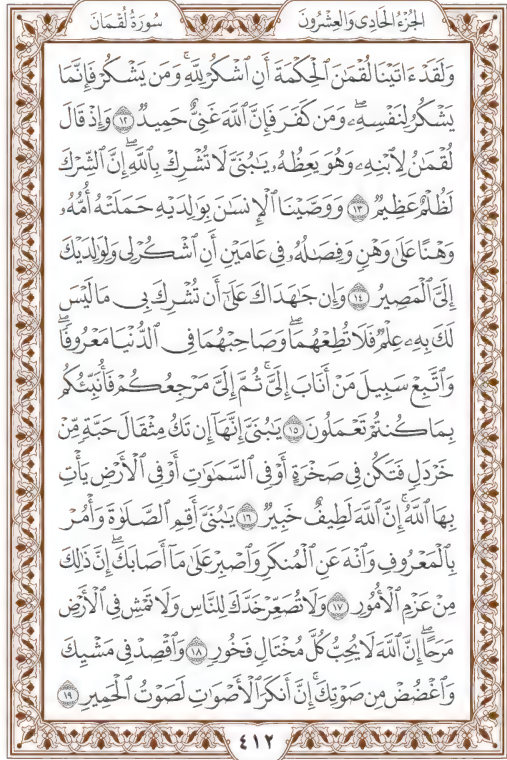 الجُزْءُ الحَادِي وَالعِشْرُونَ
سُورَةُ لُقْمَانَ
وَلَقَدْ ءَاتَيْنَا لُقْمَٰنَ ٱلْحِكْمَةَ أَنِ ٱشْكُرْ لِلَّهِۚ وَمَن يَشْكُرْ فَإِنَّمَا
يَشْكُرُ لِنَفْسِهِۦۖ وَمَن كَفَرَ فَإِنَّ ٱللَّهَ غَنِىٌّ حَمِيدٌ ١٢ وَإِذْ قَالَ
لُقْمَٰنُ لِٱبْنِهِۦ وَهُوَ يَعِظُهُۥ يَٰبُنَىَّ لَا تُشْرِكْ بِٱللَّهِۖ إِنَّ ٱلشِّرْكَ
لَظُلْمٌ عَظِيمٌ ١٣ وَوَصَّيْنَا ٱلْإِنسَٰنَ بِوَٰلِدَيْهِ حَمَلَتْهُ أُمُّهُۥ
وَهْنًا عَلَىٰ وَهْنٍ وَفِصَٰلُهُۥ فِى عَامَيْنِ أَنِ ٱشْكُرْ لِى وَلِوَٰلِدَيْكَ
إِلَىَّ ٱلْمَصِيرُ ١٤ وَإِن جَٰهَدَاكَ عَلَىٰٓ أَن تُشْرِكَ بِى مَا لَيْسَ
لَكَ بِهِۦ عِلْمٌ فَلَا تُطِعْهُمَاۖ وَصَاحِبْهُمَا فِى ٱلدُّنْيَا مَعْرُوفًاۖ
وَٱتَّبِعْ سَبِيلَ مَنْ أَنَابَ إِلَىَّۚ ثُمَّ إِلَىَّ مَرْجِعُكُمْ فَأُنَبِّئُكُم
بِمَا كُنتُمْ تَعْمَلُونَ ١٥ يَٰبُنَىَّ إِنَّهَآ إِن تَكُ مِثْقَالَ حَبَّةٍ مِّنْ
خَرْدَلٍ فَتَكُن فِى صَخْرَةٍ أَوْ فِى ٱلسَّمَٰوَٰتِ أَوْ فِى ٱلْأَرْضِ يَأْتِ
بِهَا ٱللَّهُۚ إِنَّ ٱللَّهَ لَطِيفٌ خَبِيرٌ ١٦ يَٰبُنَىَّ أَقِمِ ٱلصَّلَوٰةَ وَأْمُرْ
بِٱلْمَعْرُوفِ وَٱنْهَ عَنِ ٱلْمُنكَرِ وَٱصْبِرْ عَلَىٰ مَآ أَصَابَكَۖ إِنَّ ذَٰلِكَ
مِنْ عَزْمِ ٱلْأُمُورِ ١٧ وَلَا تُصَعِّرْ خَدَّكَ لِلنَّاسِ وَلَا تَمْشِ فِى ٱلْأَرْضِ
مَرَحًاۖ إِنَّ ٱللَّهَ لَا يُحِبُّ كُلَّ مُخْتَالٍ فَخُورٍ ١٨ وَٱقْصِدْ فِى مَشْيِكَ
وَٱغْضُضْ مِن صَوْتِكَۚ إِنَّ أَنكَرَ ٱلْأَصْوَٰتِ لَصَوْتُ ٱلْحَمِيرِ ١٩
٤١٢